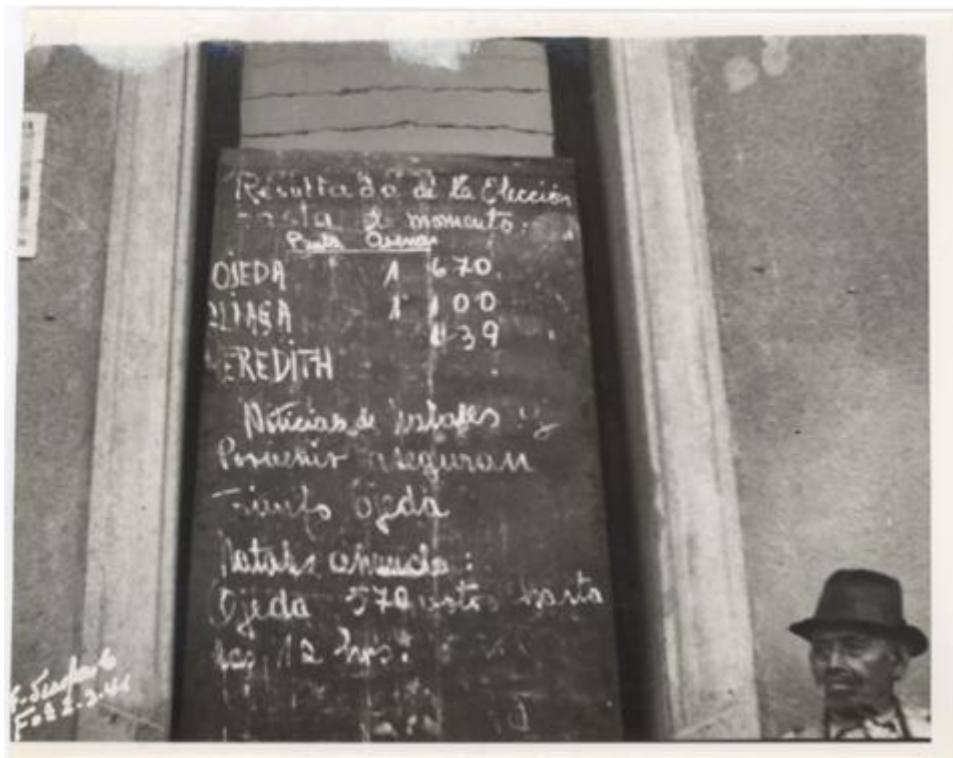 Resultado de la Elección
hasta el momento:
Punta Arenas
OJEDA 1 670
ALIAGA 1 100
439
MEREDITH
Noticias de Natales y
Porvenir aseguran
Triunfo Ojeda
Natales anuncia:
Ojeda 570 votos hasta
las 12 hrs: